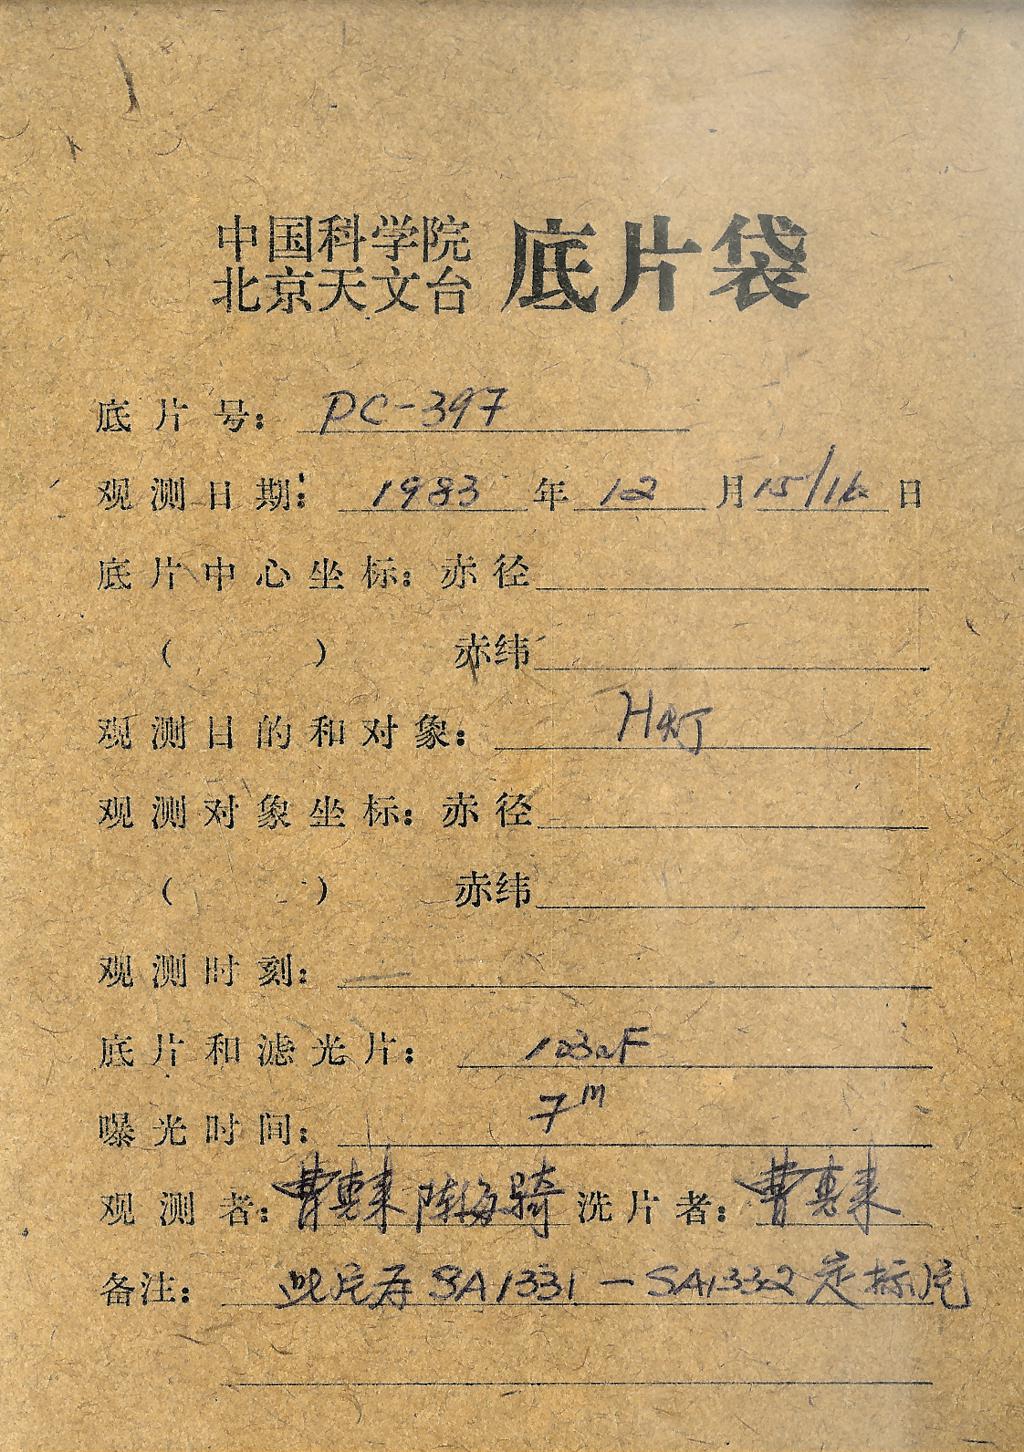 中国科学院
北京天文台 底片袋
底片号: PC-397
观测日期: 1983 年 12 月 15/16 日
底片中心坐标: 赤径
( ) 赤纬
观测目的和对象: H灯
观测对象坐标: 赤径
( ) 赤纬
观测时刻: —
底片和滤光片: 103aF
曝光时间: 7m
观测者: 曹惠来 陈海骑 洗片者: 曹惠来
备注: 此片存 SA1331-SA1332 定标片